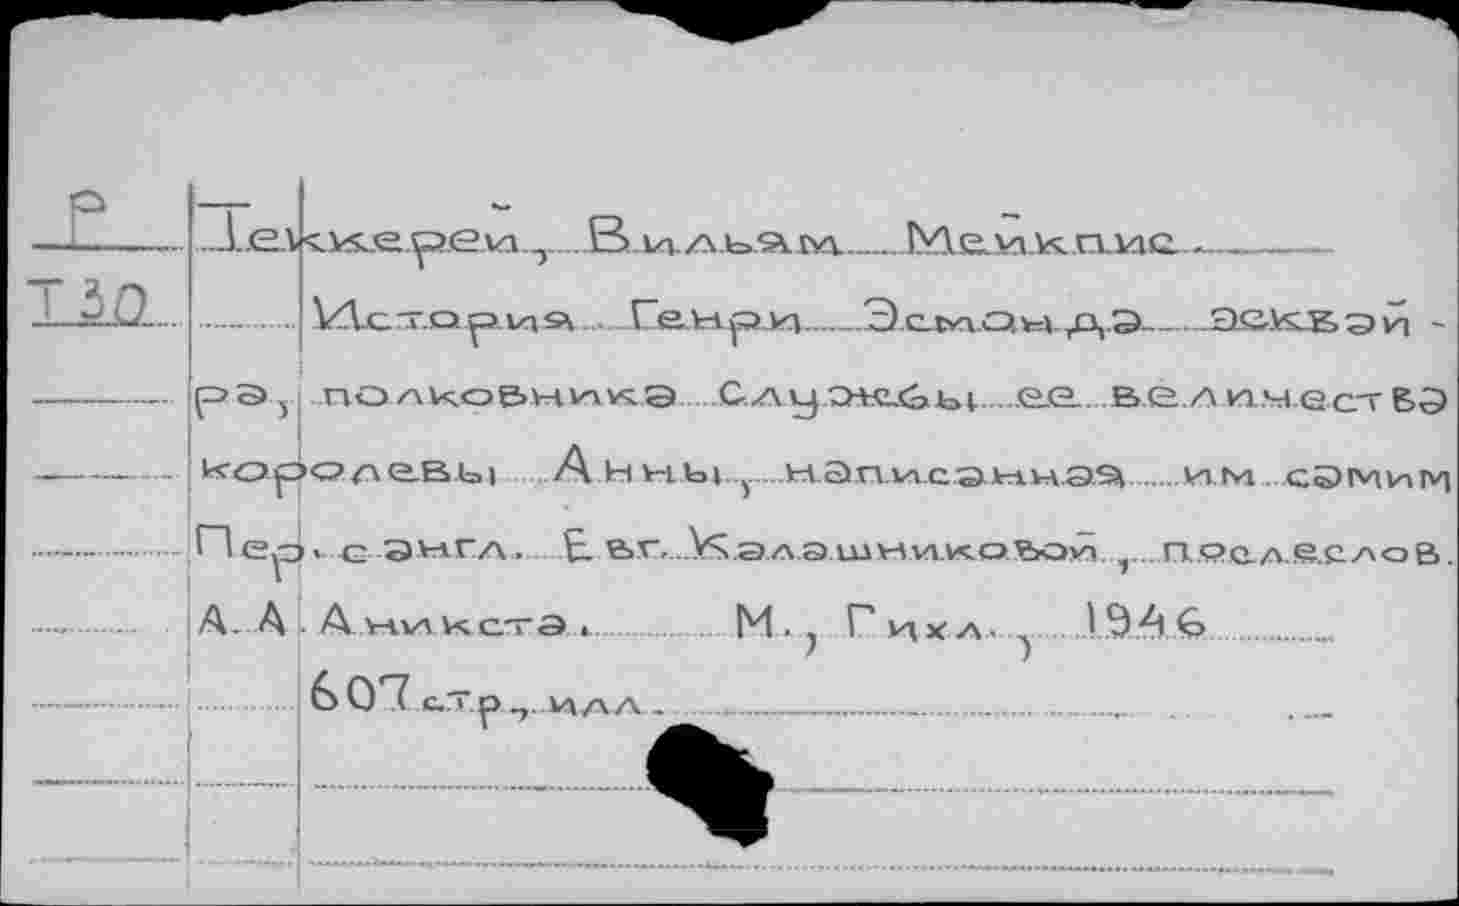 Р Теккерей, Вильям Мейкпис.
Т30 История Генри Эсмонда эсквай-
ра, полковника Службы ее величества
королевы Анны, написанная им самим
Пер. с англ. Евг. Калашниковой, послеслов.
А. А. Аникста. М., Гихл., 1946
607 стр., илл.